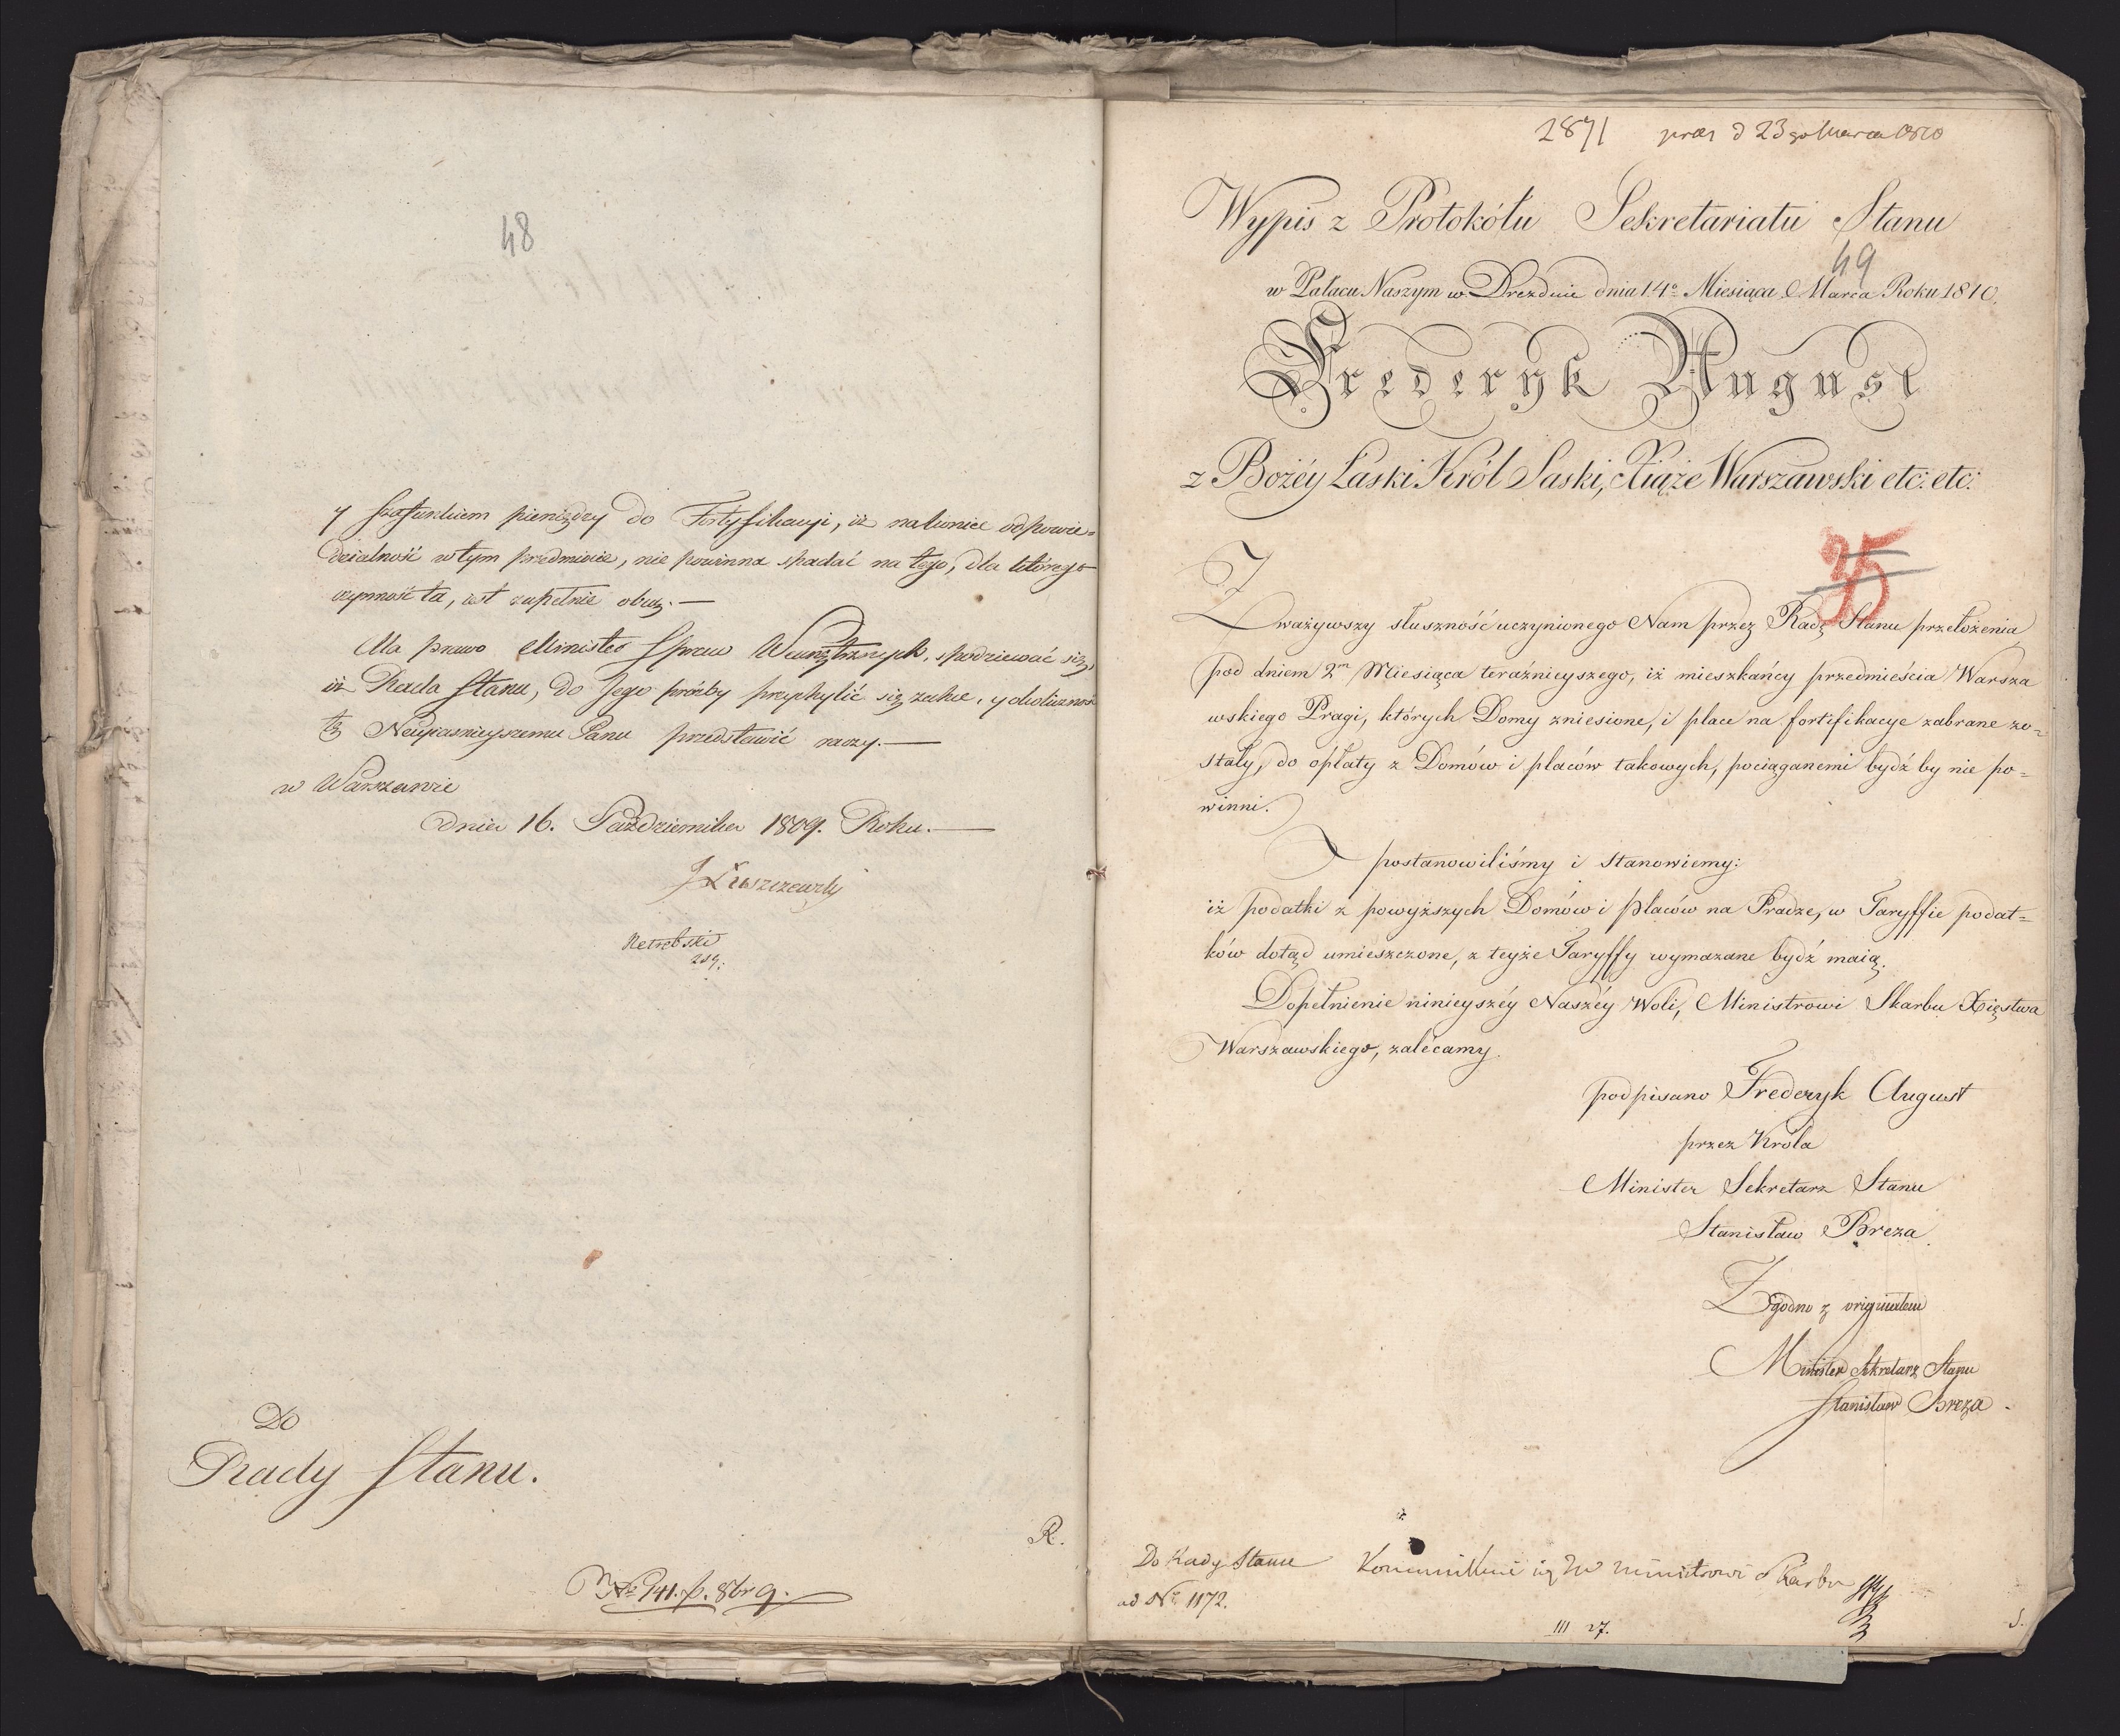 48
y szafunkiem pieniędzy do Fortyfikacyi, iż nakoniec odpowie=
dzialność w tym przedmiocie, nie powinna spadać na tego, dla którego
czynność ta, iest zupełnie obcą. —
Ma prawo Minister Spraw Wewnętrznych, spodziewać się,
iż Rada Stanu, do Jego prośby przychylić się zechce, y okoliczność
tę Nayiaśnieyszemu Panu przedstawić raczy. —
w Warszawie
dnia 16. Października 1809. Roku. —
J Łuszczewski
Netrebski
Do
Rady Stanu.
R.
No 941. p. 8br 9.
2871 prez d 23go Marca 1810
Wypis z Protokółu Sekretariatu Stanu
49
w Pałacu Naszym w Dreźnie dnia 14o Miesiąca Marca Roku 1810.
Frederyk August
z Bożéy Łaski Król Saski, Xiąże Warszawski etc: etc:
35
Zważywszy słuszność uczynionego Nam przez Radę Stanu przełożenia
pod dniem 2m Miesiąca teraźnieyszego, iż mieszkańcy przedmieścia Warsza
wskiego Pragi, których Domy zniesione, i place na fortifikacye zabrane zo=
stały, do opłaty z Domów i placów takowych, pociąganemi bydź by nie po=
winni.
postanowiliśmy i stanowiemy:
iż podatki z powyższych Domów i placów na Pradze, w Taryffie podat=
ków dotąd umieszczone, z teyże Taryffy wymazane bydź maią.
Dopełnienie ninieyszéy Naszéy Woli, Ministrowi Skarbu Xięstwa
Warszawskiego, zalécamy.
podpisano Frederyk August
przez Króla
Minister Sekretarz Stanu
Stanisław Breza.
Zgodno z originałem
Minister Sekretarz Stanu
Stanisław Breza.
Do Rady Stanu
ad No 1172.
Ministrowi Skarbu
III 27.
S.